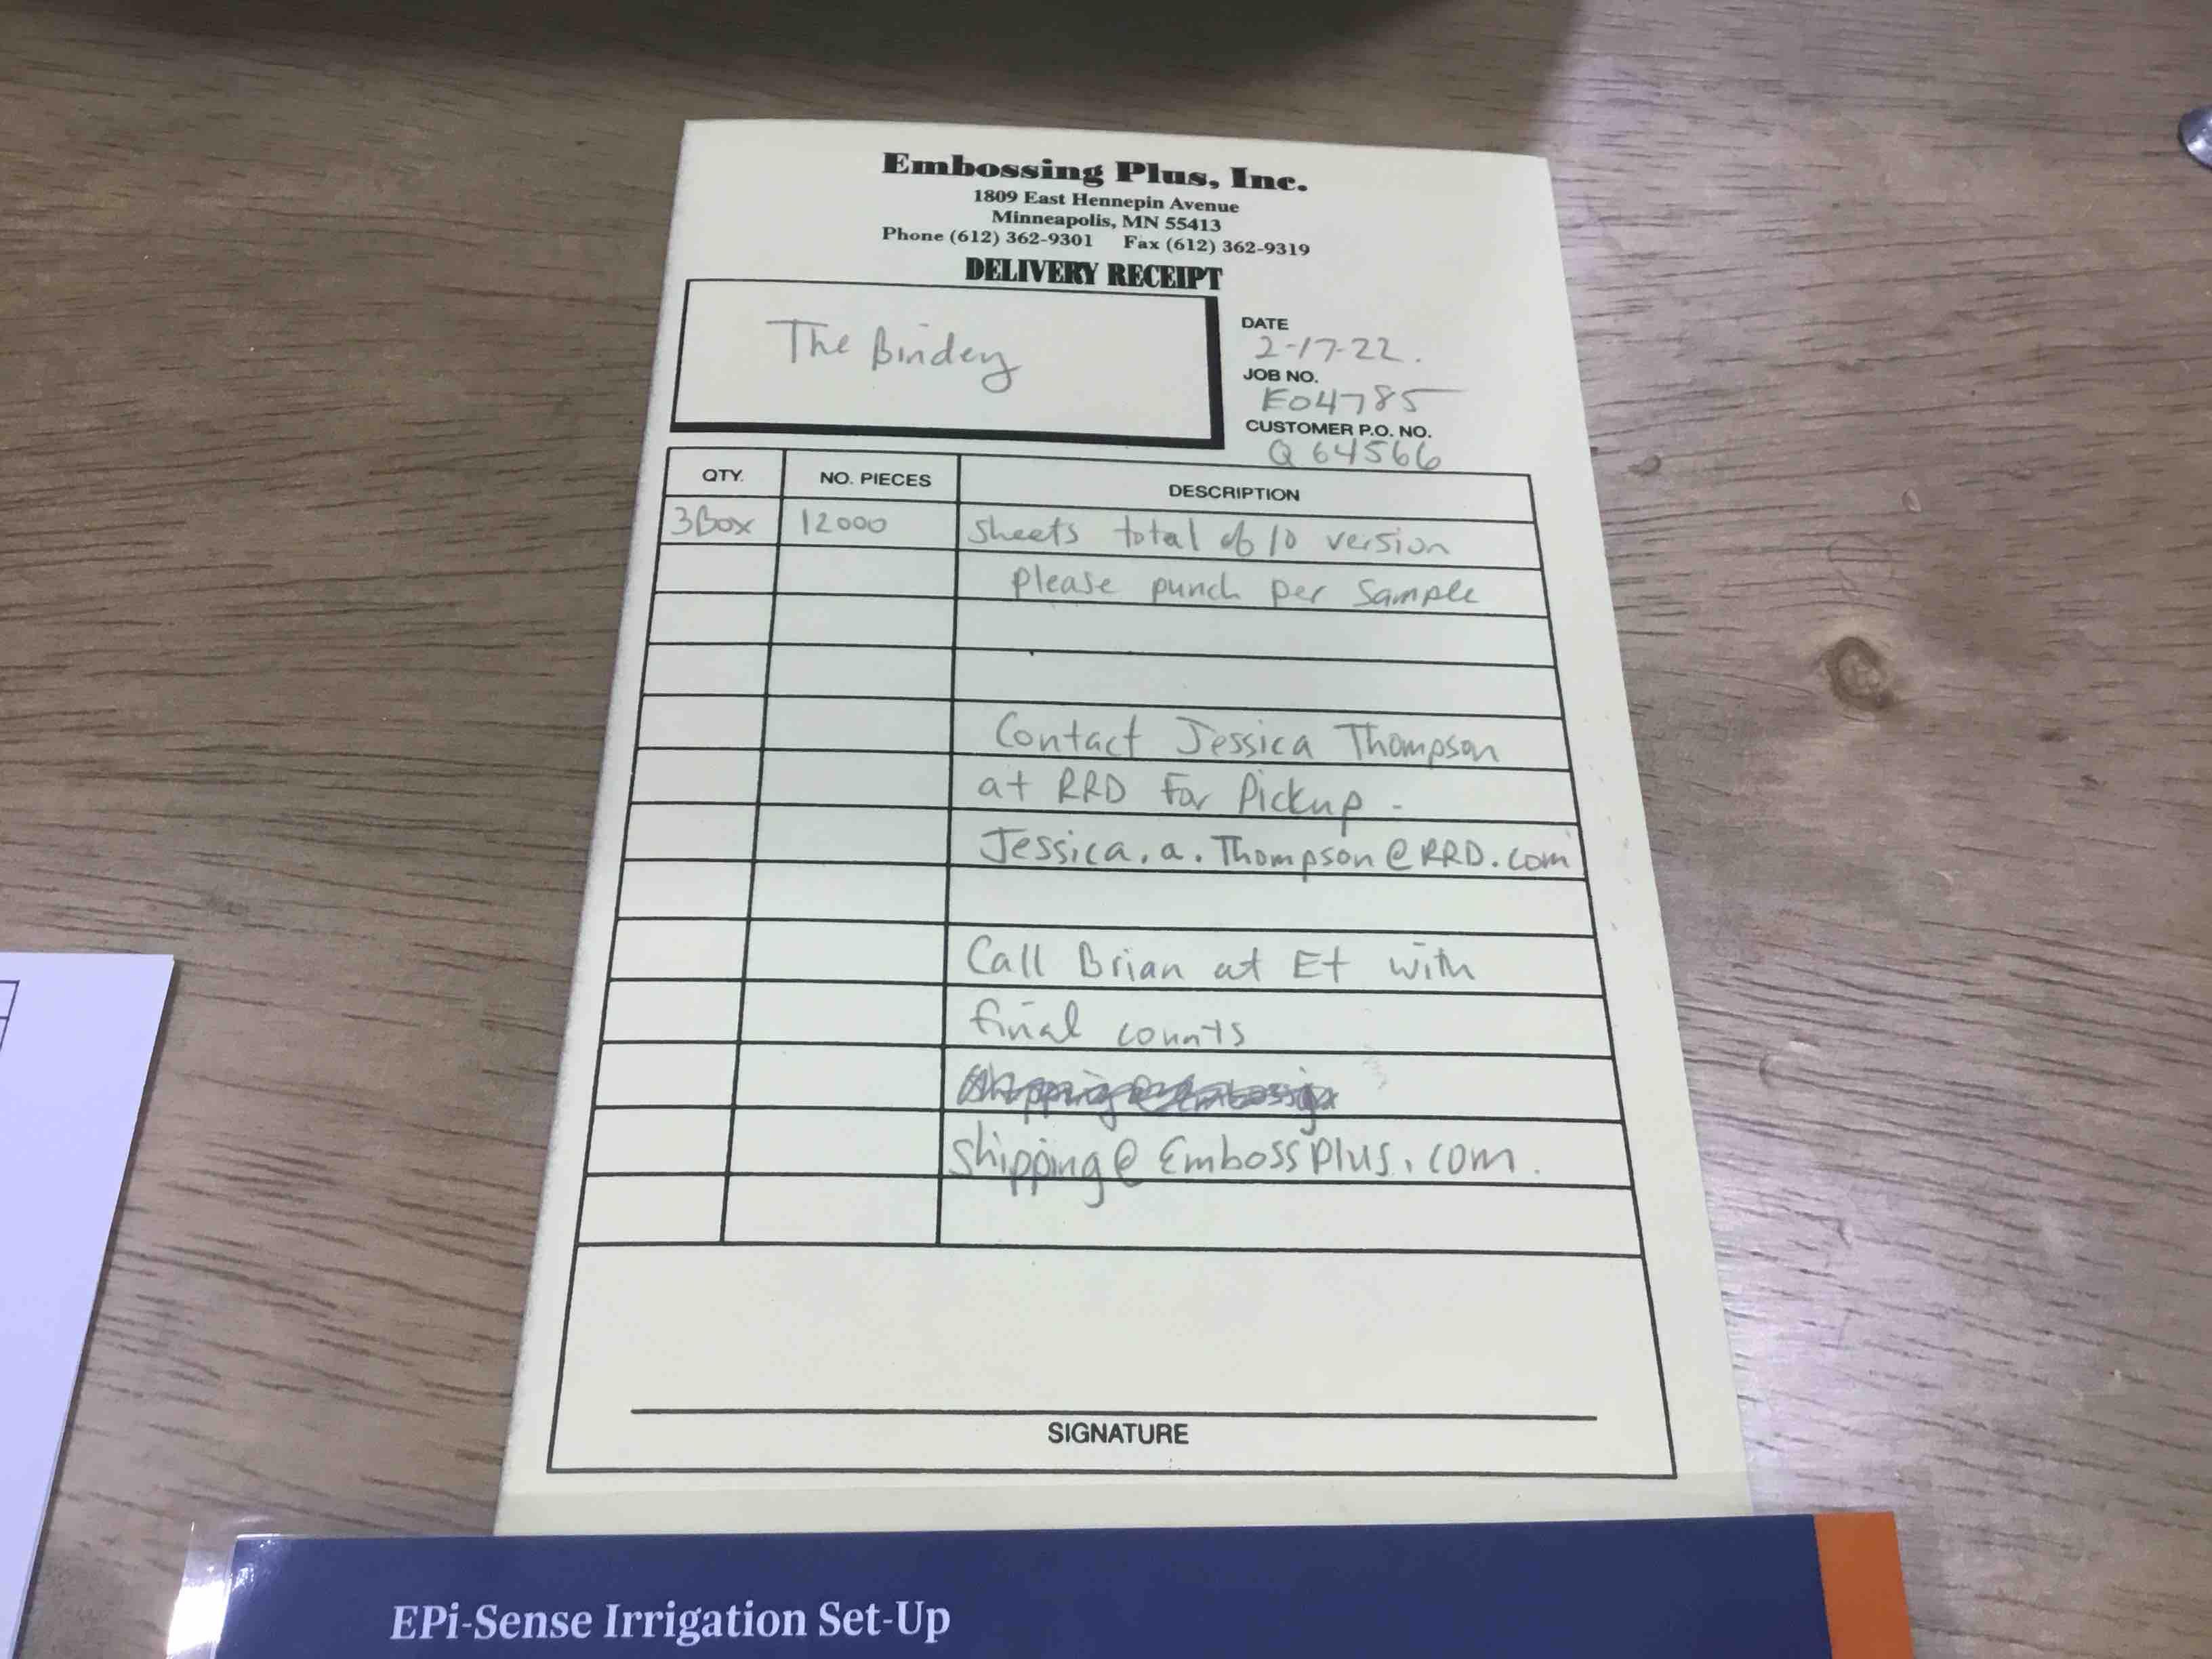 Embossing Plus, Inc.
1809 East Hennepin Avenue
Minneapolis, MN 55413
Phone (612) 362-9301 Fax (612) 362-9319
DELIVERY RECEIPT
The Bindery
DATE
2-17-22.
JOB NO.
E04785
CUSTOMER P.O. NO.
Q 64566
QTY. NO. PIECES DESCRIPTION
3Box 12000 Sheets total of 10 version
please punch per sample
Contact Jessica Thompson
at RRD For Pickup -
Jessica.a.Thompson@RRD.com
Call Brian at E+ with
final counts
shipping@EmbossPlus.com.
SIGNATURE
EPi-Sense Irrigation Set-Up